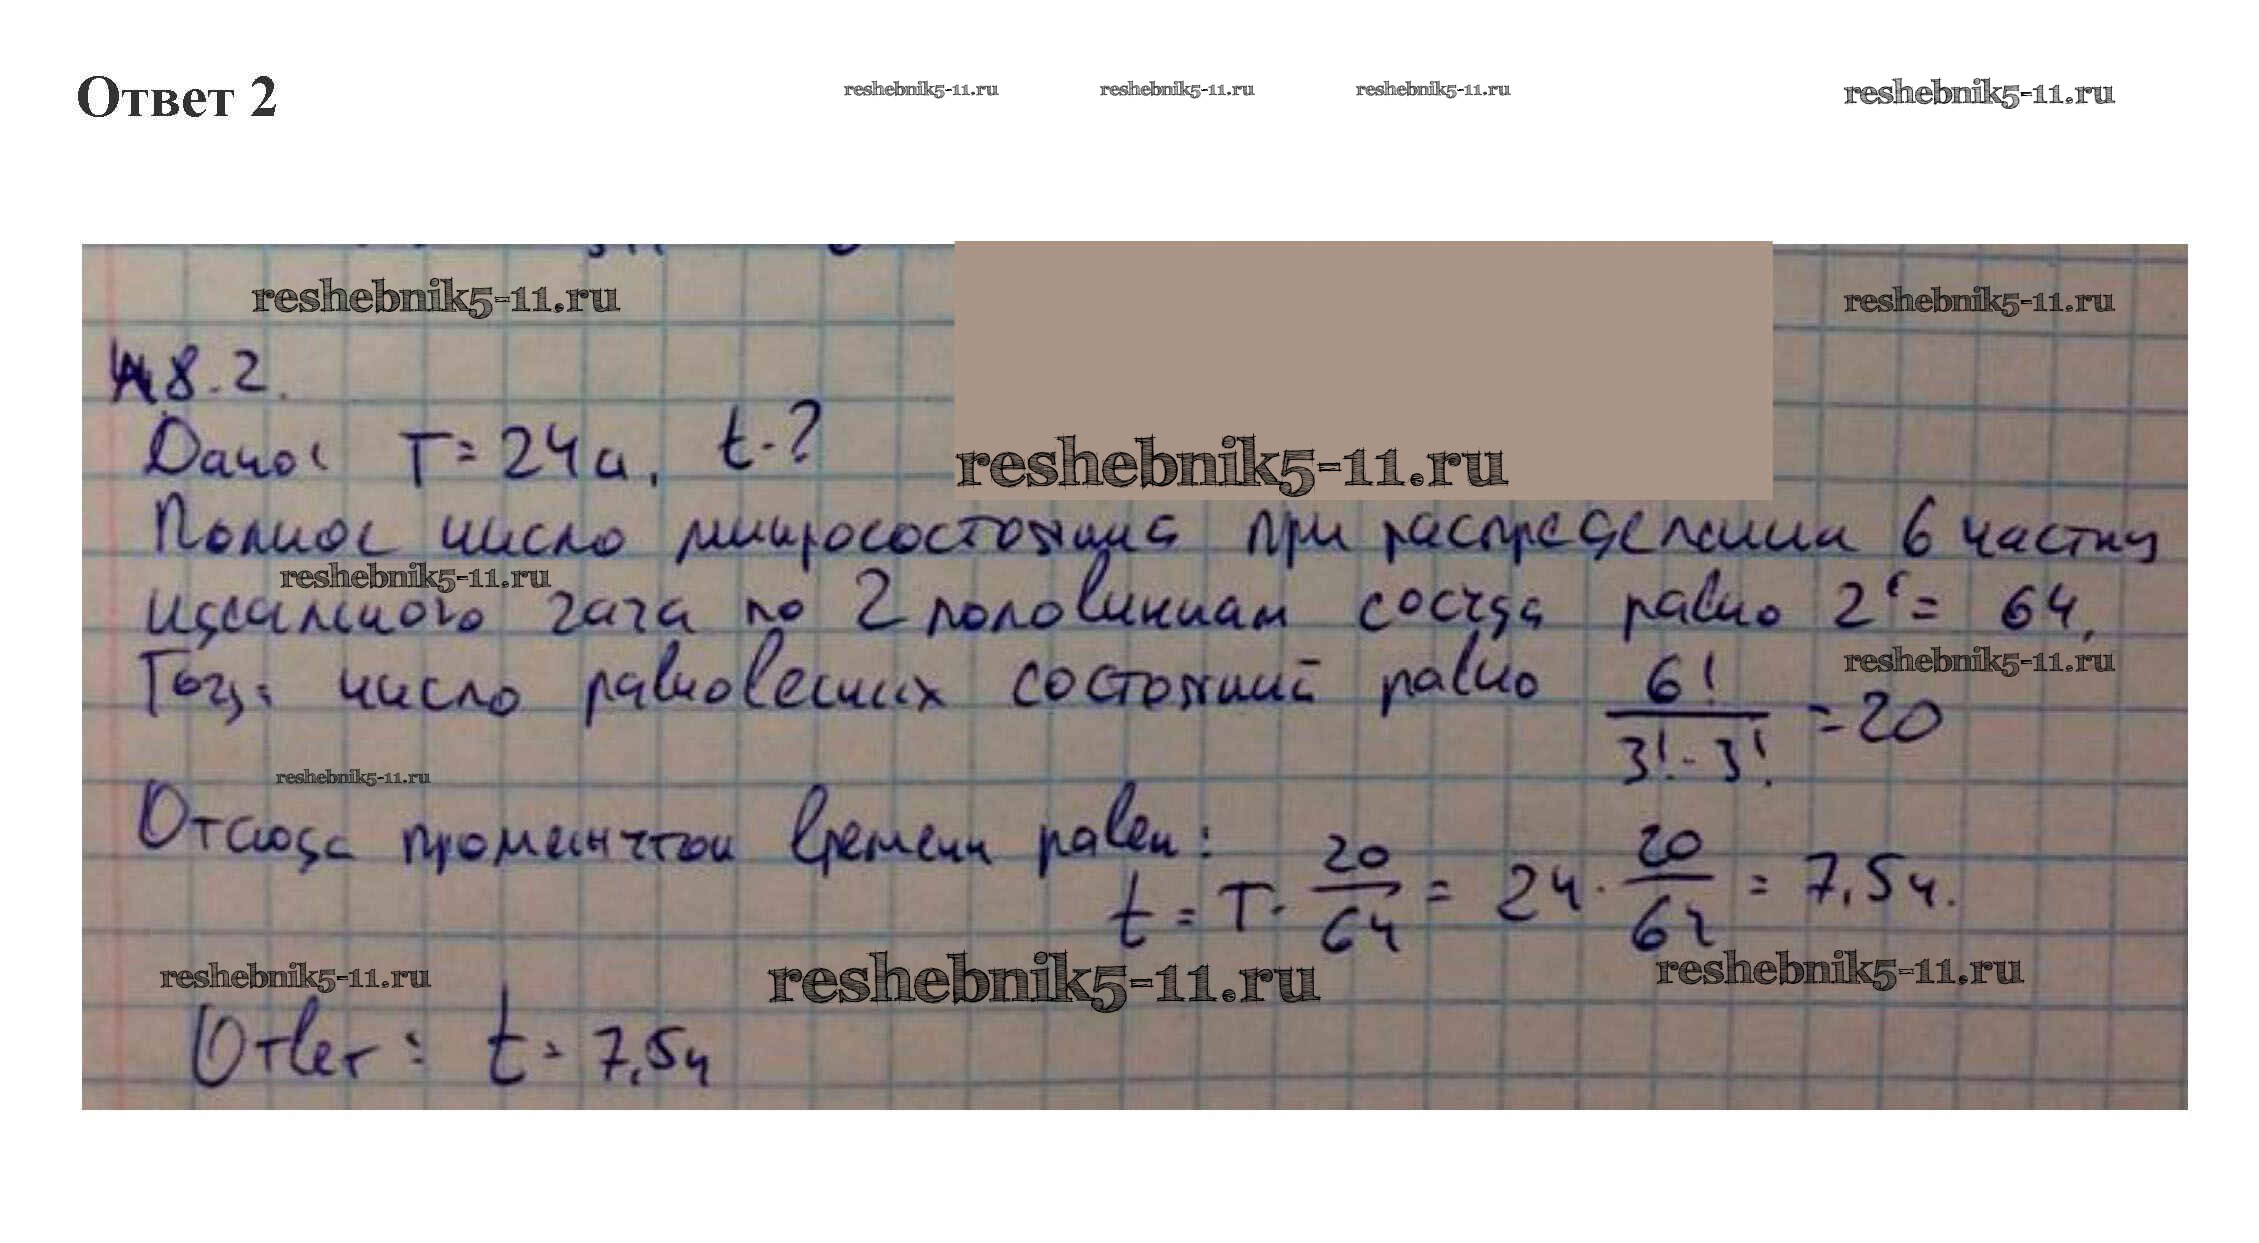 Ответ 2
reshebnik5-11.ru reshebnik5-11.ru reshebnik5-11.ru reshebnik5-11.ru
reshebnik5-11.ru reshebnik5-11.ru
8.2.
Дано: T = 24ч, t - ?
reshebnik5-11.ru
Полное число микросостояния при распределении 6 частиц
reshebnik5-11.ru
идеального газа по 2 половинам сосуда равно 2⁶ = 64.
reshebnik5-11.ru
Тогда число равновесных состояний равно 6! / 3! · 3! = 20
reshebnik5-11.ru
Отсюда промежуток времени равен:
t = T · 20/64 = 24 · 20/64 = 7,5ч.
reshebnik5-11.ru reshebnik5-11.ru reshebnik5-11.ru
Ответ: t = 7,5ч